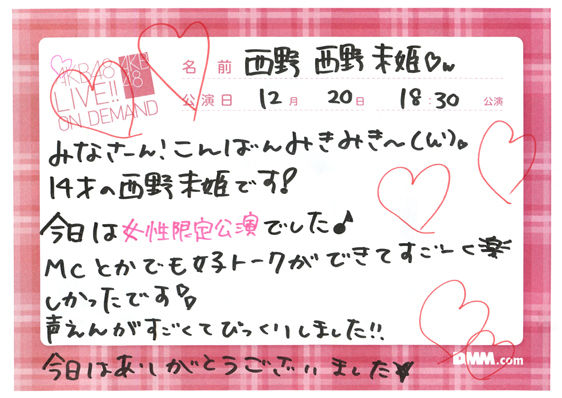 AKB48
LIVE!!
ON DEMAND
AKB
48
名前 西野 西野 未姫♡
公演日 12月 20日 18:30 公演
みなさーん!こんばんみきみき〜(ω')
14才の西野未姫です!
今日は女性限定公演でした♪
MCとかでも女子トークができてすごーく楽
しかったです
声えんがすごくてびっくりしました!!
今日はありがとうございました
DMM.com